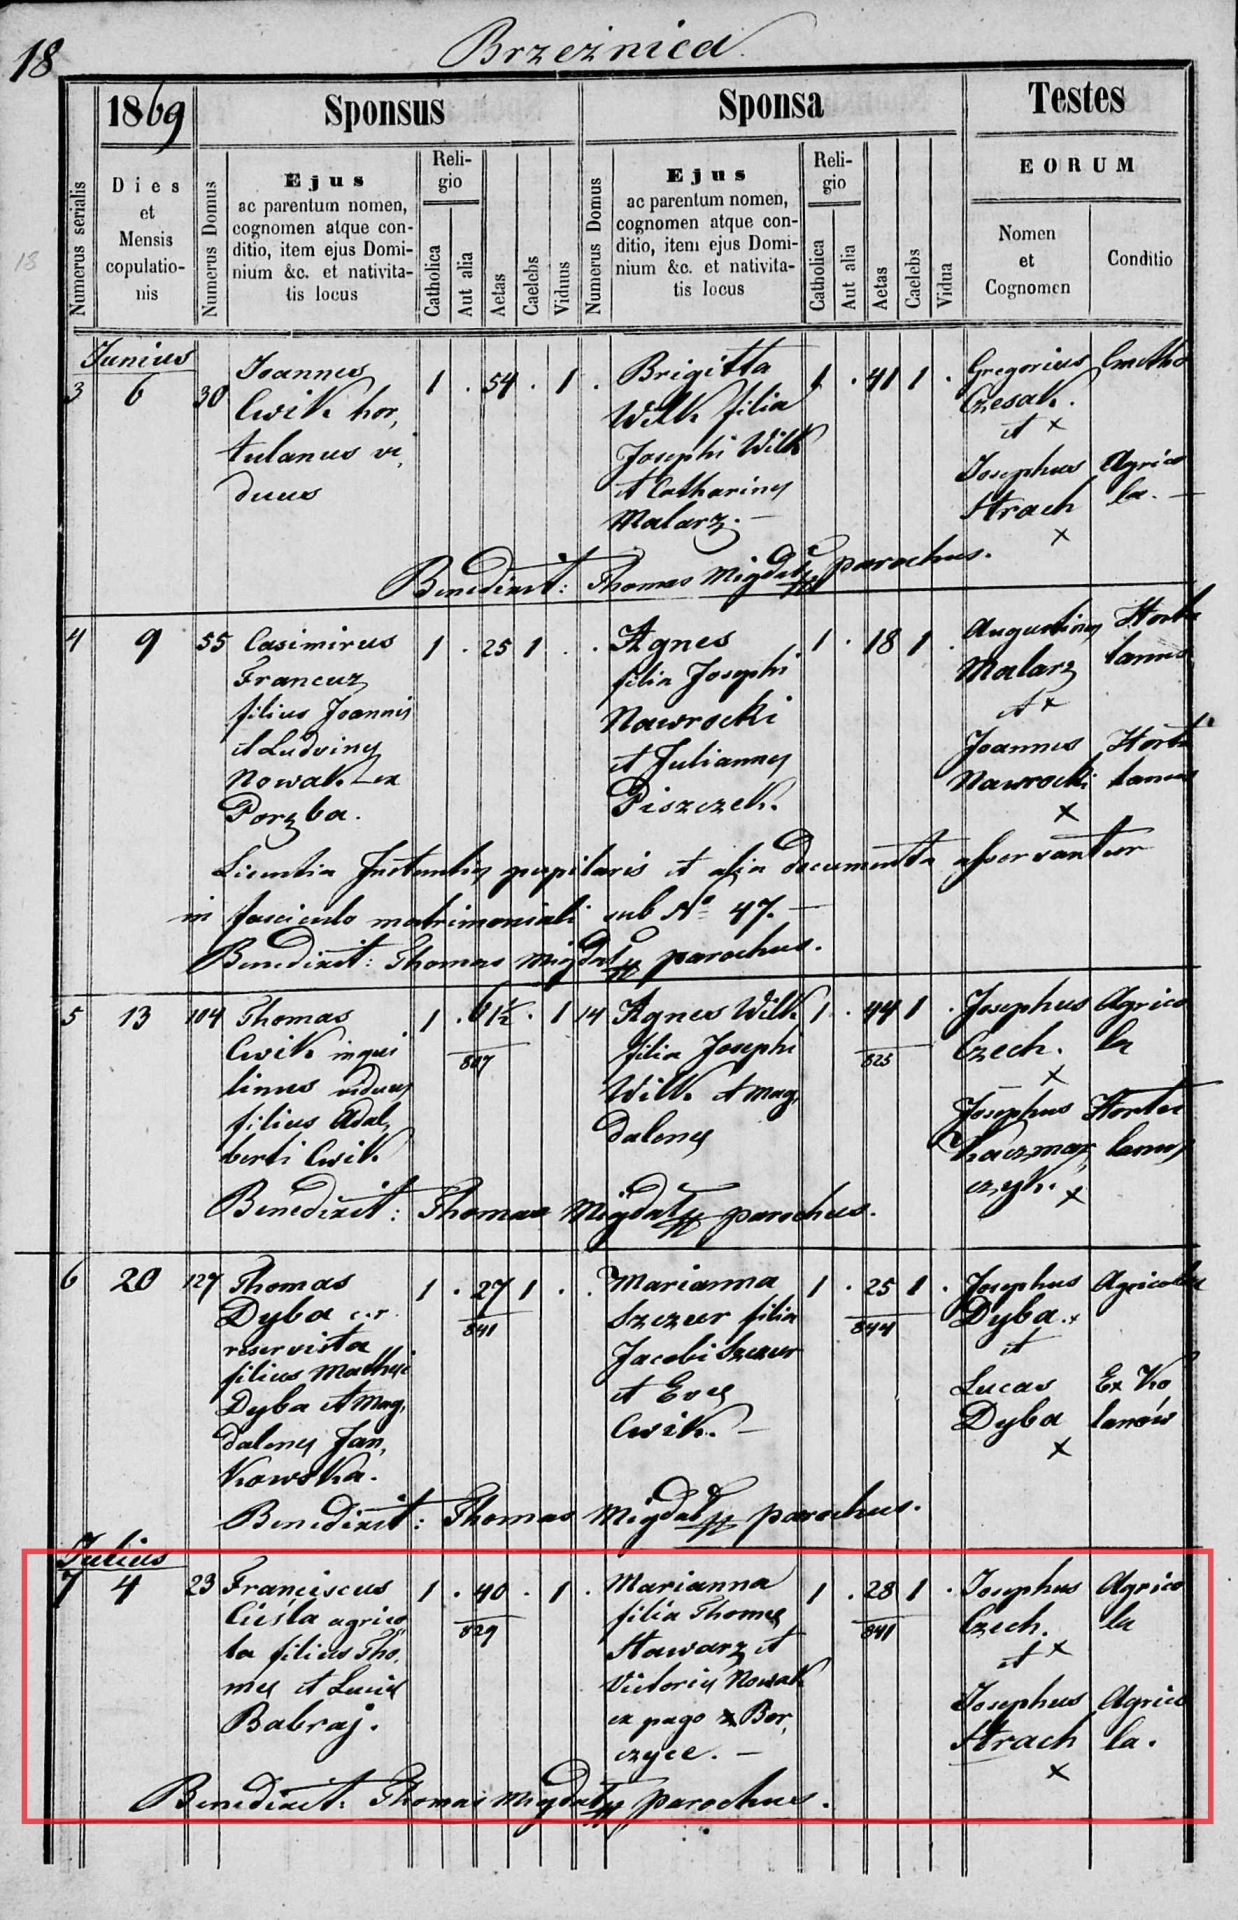 18
Brzeźnica
1869
Sponsus
Sponsa
Testes
Numerus serialis
Dies
et
Mensis
copulatio-
nis
Numerus Domus
Ejus
ac parentum nomen,
cognomen atque con-
ditio, item ejus Domi-
nium &c. et nativita-
tis locus
Reli-
gio
Catholica
Aut alia
Aetas
Caelebs
Viduus
Numerus Domus
Ejus
ac parentum nomen,
cognomen atque con-
ditio, item ejus Domi-
nium &c. et nativita-
tis locus
Reli-
gio
Catholica
Aut alia
Aetas
Caelebs
Vidua
EORUM
Nomen
et
Cognomen
Conditio
18
Junius
3 6 30
Joannes
Cwik hor,
tulanus vi,
duus
1 . 54 . 1 .
Brigitta
Wilk filia
Josephi Wilk
et Cathariny
Malarz. —
1 . 41 1 .
Gregorius
Czesak.
et x
Josephus
Strach
x
Cmetho
Agrico
la. —
Benedixit: Thomas Migdał parochus.
4 9 55
Casimirus
Francuz
filius Joannis
et Ludviny
Nowak ex
Poręba.
1 . 25 1 . .
Agnes
filia Josephi
Nawrocki
et Julianny
Piszczek.
1 . 18 1 .
Augustinus
Malarz
et x
Joannes
Nawrocki
x
Hortu
lanus
Hortu
lanus
Licentia Instantiy pupilaris et alia documenta asservantur
in fasciculo matrimoniali sub No 47. —
Benedixit: Thomas Migdał parochus.
5 13 104
Thomas
Cwik inqui
linus viduus
filius Adal,
berti Cwik
1 . 61½ . 1
807
14
Agnes Wilk
filia Josephi
Wilk et Mag,
daleny
1 . 44 1 .
825
Josephus
Czech.
x
Josephus
Kaczmar,
czyk.
x
Agrico
la
Hortu
lanus
Benedixit: Thomas Migdał parochus.
6 20 127
Thomas
Dyba c.r.
reservista
filius Mathei
Dyba et Mag,
daleny Jan,
kowska.
1 . 27 1 . .
841
Marianna
Szczur filia
Jacobi Szczur
et Evy
Cwik. —
1 . 25 1 .
844
Josephus
Dyba. x
et
Lucas
Dyba
x
Agricola
Ex Ko
lanów
Benedixit: Thomas Migdał parochus.
Julius
7 4 23
Franciscus
Cieśla agrico
la filius Tho,
my et Lucie
Babraj.
1 . 40 . 1 .
829
Marianna
filia Thomy
Stawarz et
Victoriy Nowak
ex pago x Bor,
czyce. —
1 . 28 1 .
841
Josephus
Czech.
et x
Josephus
Strach
x
Agrico
la
Agrico
la.
Benedixit: Thomas Migdał parochus.